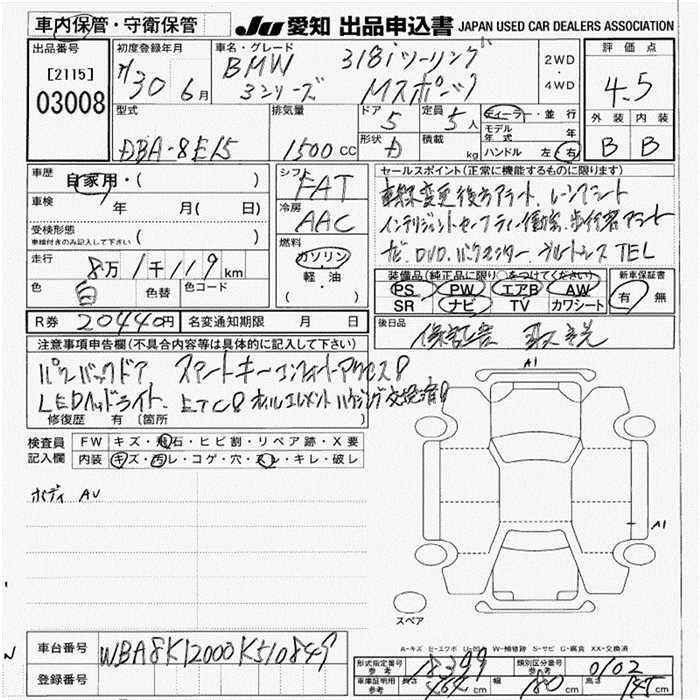 車内保管・守衛保管
JU 愛知 出品申込書 JAPAN USED CAR DEALERS ASSOCIATION
出品番号
[2115]
03008
初度登録年月
H30 6月
車名・グレード
BMW 318iツーリング
3シリーズ Mスポーツ
2WD
・
4WD
評価点
4.5
外装 内装
B B
型式
DBA-8E15
排気量
1500CC
ドア
5
定員
5人
形状
積載
kg
ディーラー・並行
モデル年式 年
ハンドル 左・右
車歴
自家用・( )
車検
年 月( 日)
受検形態
車検付きのみ記入して下さい ( )
走行
8万1千119km
色
白
色替
色コード
シフト
FAT
冷房
AAC
燃料
ガソリン
・
軽・油
( )
セールスポイント(正常に機能するものに限ります)
車線変更後方アラート、レーンアラート
インテリジェントセーフティー衝突、歩行者アラート
ナビ、DVD、バックセンサー、ブルートゥース TEL
装備品(純正品に限り○をつけてください)
PS PW エアB AW
SR ナビ TV カワシート
新車保証書
有・無
R券 20440円
名変通知期限 月 日
後日品
保証書 取説
注意事項申告欄(不具合内容等は具体的に記入して下さい)
パワーバックドア スマートキー コンフォートアクセス
LEDヘッドライト、ETC
修復歴 有 (箇所 )
検査員
記入欄
FW キズ・飛石・ヒビ割・リペア跡・X要
内装 キズ・汚レ・コゲ・穴・スレ・キレ・破レ
ボディ AU
A1
A1
スペア
A-キズ E-エクボ U-凹ミ W-補修跡 S-サビ C-腐食 XX-交換済
車台番号 WBA8K12000K510849
登録番号
形式指定番号
参考
類別区分番号
参考
0102
車庫証明用
参考
長さ cm 幅 180cm 高さ cm